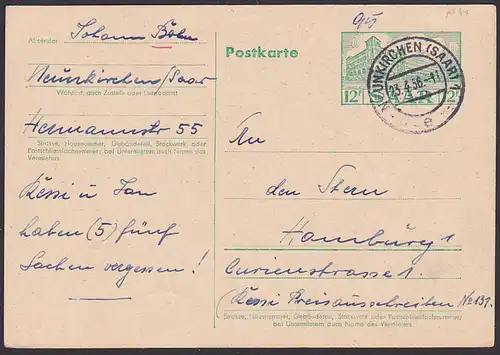 Absender: Johann Bohn
Neunkirchen/Saar
Wohnort, auch Zustell- oder Leitpostamt
Hermannstr 55
Strasse, Hausnummer, Gebäudeteil, Stockwerk oder
Postschließfachnummer; bei Untermietern auch Name des
Vermieters
Kessi u Jan
haben (5) fünf
Sachen vergessen!
Postkarte
NEUNKIRCHEN (SAAR) 1
23.4.56
e
12F SAAR 12F
An
den Stern
Hamburg 1
Curienstrasse 1.
(Kessi Preisausschreiben No 131.
Strasse, Hausnummer, Gebäudeteil, Stockwerk oder Postschließfachnummer
bei Untermietern auch Name des Vermieters